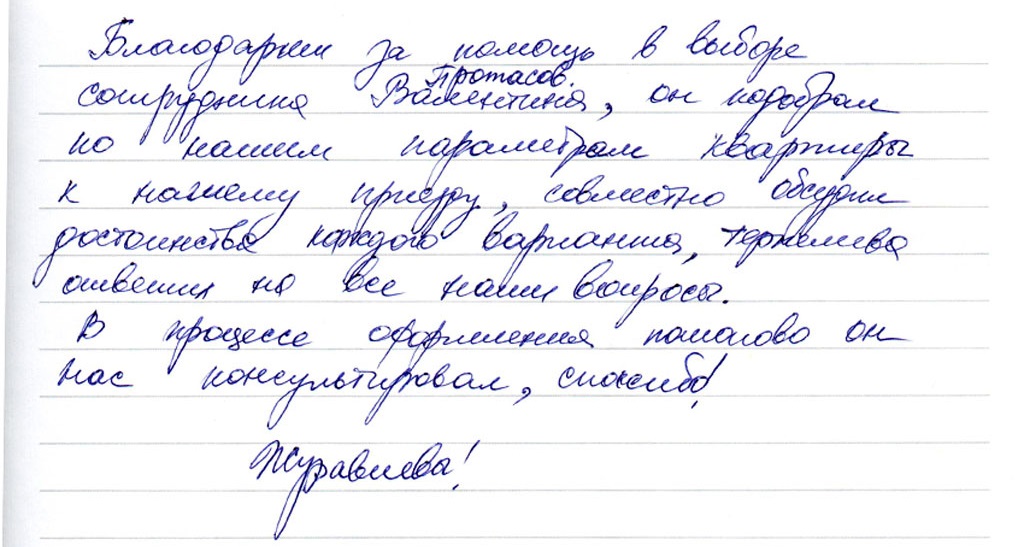 Благодарим за помощь в выборе
Протасов.
сотрудника Валентина, он подобрал
по нашим параметрам квартиры
к нашему приезду, совместно обсудили
достоинства каждого варианта, терпеливо
ответил на все наши вопросы.
В процессе оформления пошагово он
нас консультировал, спасибо!
Журавлева!